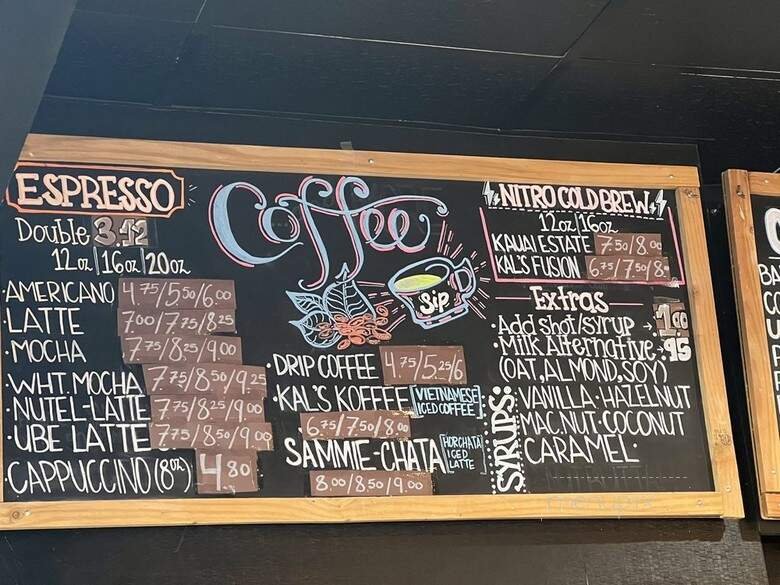 ESPRESSO
Double 3.42
12oz|16oz|20oz
·AMERICANO 4.75/5.50/6.00
·LATTE 7.00/7.75/8.25
·MOCHA 7.75/8.25/9.00
·WHT. MOCHA 7.75/8.50/9.25
·NUTEL-LATTE 7.75/8.25/9.00
·UBE LATTE 7.75/8.50/9.00
·CAPPUCCINO (8oz) 4.80
Coffee
Sip
·DRIP COFFEE 4.75/5.25/6
·KAL'S KOFFEE [VIETNAMESE ICED COFFEE]
6.75/7.50/8.00
SAMMIE-CHATA [HORCHATA ICED LATTE]
8.00/8.50/9.00
NITRO COLD BREW
12oz|16oz
KAUAI ESTATE 7.50/8.00
KAL'S FUSION 6.75/7.50/8
Extras
·Add shot/syrup → 1.00
·Milk Alternative → .95
(OAT, ALMOND, SOY)
SYRUPS:
·VANILLA·HAZELNUT
MAC.NUT·COCONUT
CARAMEL·